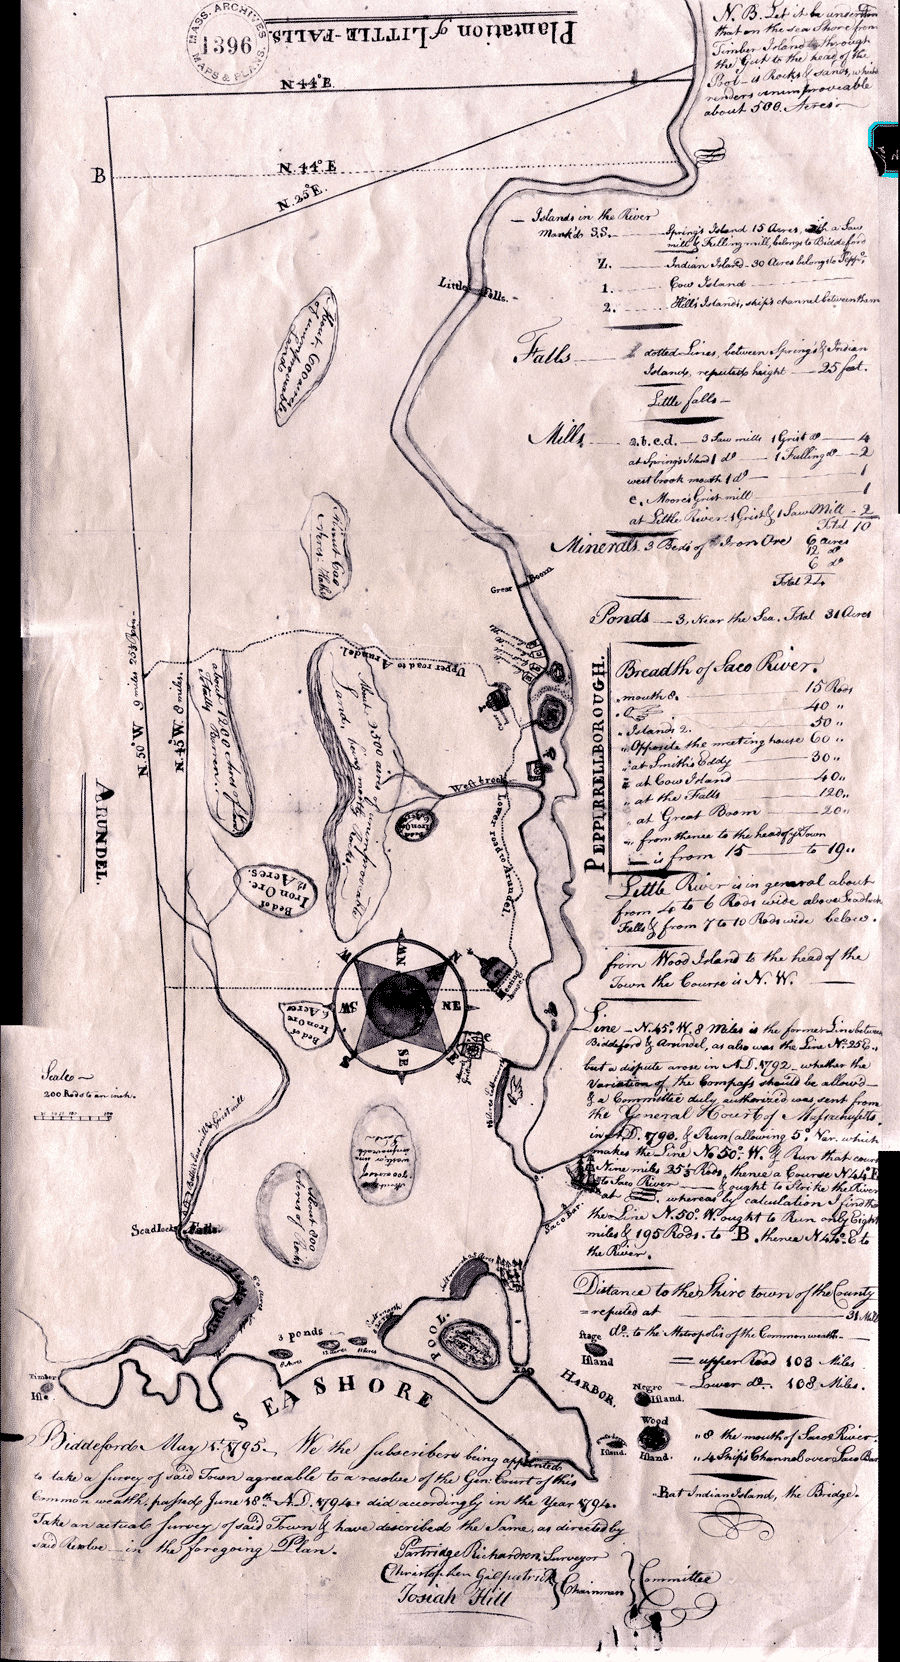 Plantation of LITTLE-FALLS.
MASS. ARCHIVES
1396
MAPS & PLANS.
N.B. Let it be understood
that on the sea Shore from
Timber Island through
the Gut to the head of the
Pool is Rocks & sands, which
renders unimproveable
about 500. Acres
N 44° E.
B
N. 44° E
N. 25° E.
Islands in the River
Mark'd S.S. Spring's Island 15 Acres, with a Saw
mill & Fulling mill, belongs to Biddeford
Z. Indian Island 30 Acres belongs to Pepp.
1. Cow Island
2. Hill's Islands, ship's channel between them
Little Falls.
About 600 acres
of unimproveable
Lands
Falls dotted Lines, between Spring's & Indian
Islands, reputed height 25 feet.
Little falls
Mills a.b.c.d. 3 Saw mills 1 Grist do 4
at Spring's Island 1 do 1 Fulling do 2
west brook mouth 1 do 1
e. Moore's Grist mill 1
at Little River. 1 Grist & 1 Saw Mill 2
Total 10
Minerals. 3 Beds of Iron Ore 6 acres
12 do
6 do
Total 24
Great Boom
Ponds 3, Near the Sea. Total 31 Acres
PEPPERRELLBOROUGH.
Breadth of Saco River.
mouth 8. 15 Rods
40 "
Islands 2. 50 "
Opposite the meeting house 60 "
at Smith's Eddy 30 "
at Cow Island 40 "
at the Falls 120 "
at Great Boom 20 "
from thence to the head of ye Town
is from 15 to 19 "
Upper road to Arundel
N. 50° W. 9 miles
N. 45° W. 8 miles,
ARUNDEL.
About 2500 acres of unimproveable
Lands, being mostly Rocks.
West brook
Lower road to Arundel.
Bed of
Iron Ore
6 Acres
Bed of
Iron Ore.
12 Acres.
Little River is in general about
from 4 to 6 Rods wide above Scadlocks
Falls & from 7 to 10 Rods wide below.
from Wood Island to the head of the
Town the Course is N. W.
W NW N
SW NE
S SE E
Meeting
house
Bed of
Iron Ore
6 Acres
Line N. 45° W. 8 Miles is the former Line between
Biddeford & Arundel, as also was the Line N. 25 E.
but a dispute arose in A.D. 1792 whether the
Variation of the Compass should be allowed
& a Committee duly authorized was sent from
the General Court of Massachusetts
in A.D. 1793. & Run (allowing 5° Var. which
makes the Line N. 50° W. & Run that course
Nine miles 25½ Rods, thence a Course N 44° E
to Saco River & ought to Strike the River
at whereas by calculation I find that
the Line N. 50° W. ought to Run only Eight
miles & 195 Rods. to B. thence N 44° E to
the River.
Scale
200 Rods to an inch.
Scadlocks Falls.
About 200
Acres of Rocks
Saco Bar.
Distance to the Shire town of the County
reputed at 31 Miles
do. to the Metropolis of the Common wealth
upper Road 103 Miles
Lower do. 108 Miles.
3 ponds
POOL.
Stage
Island
HARBOR.
Negro
Island.
Wood
Island.
Island.
Timber
Isle.
SEA SHORE
8 the mouth of Saco River.
4 Ship's Channel over Saco Bar
R at Indian Island, the Bridge.
Biddeford May 1st. 1795. We the subscribers being appointed
to take a survey of said Town agreable to a resolve of the Gen: Court of this
Common wealth, passed June 18th A.D. 1794. did accordingly in the Year 1794.
Take an actual Survey of said Town & have described the Same, as directed by
said Resolve in the foregoing Plan.
Partridge Richardson, Surveyor
Christopher Gilpatrick
Josiah Hill
Chainmen
Committee